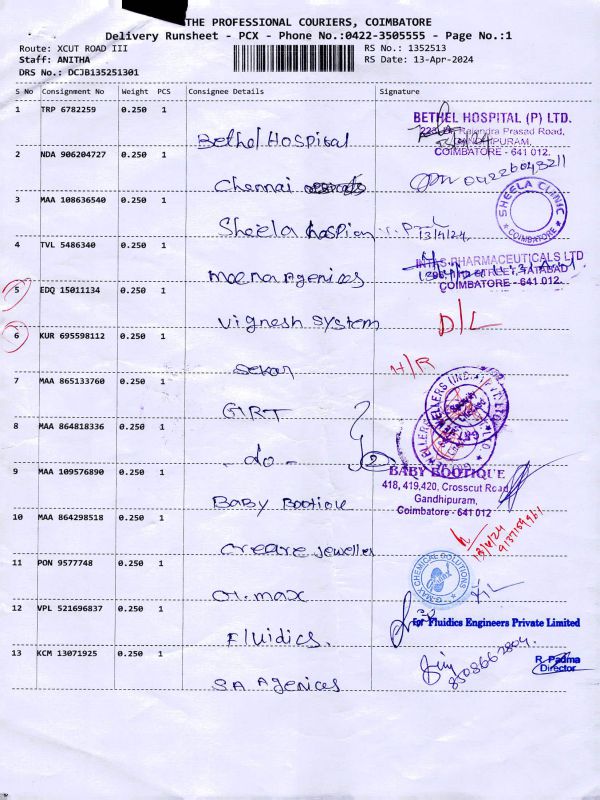 THE PROFESSIONAL COURIERS, COIMBATORE
Delivery Runsheet - PCX - Phone No.:0422-3505555 - Page No.:1
Route: XCUT ROAD III
RS No.: 1352513
Staff: ANITHA
RS Date: 13-Apr-2024
DRS No.: DCJB135251301
S No Consignment No Weight PCS Consignee Details Signature
1 TRP 6782259 0.250 1
Bethel Hospital
BETHEL HOSPITAL (P) LTD.
Rajendra Prasad Road,
COIMBATORE - 641 012.
2 NDA 906204727 0.250 1
Chennai
04226043211
3 MAA 108636540 0.250 1
Sheela
13/4/24
SHEELA CLINIC
COIMBATORE
4 TVL 5486340 0.250 1
Agenices
PHARMACEUTICALS LTD
STREET, TATABAD
COIMBATORE - 641 012.
5 EDQ 15011134 0.250 1
Vignesh System
D/L
6 KUR 695598112 0.250 1
Sekar
H/R
7 MAA 865133760 0.250 1
GIRT
8 MAA 864818336 0.250 1
- do -
9 MAA 109576890 0.250 1
Baby Bootique
BABY BOOTIQUE
418, 419,420, Crosscut Road
Gandhipuram,
Coimbatore - 641 012
10 MAA 864298518 0.250 1
Creare Jeweller
13/4/24
11 PON 9577748 0.250 1
G.max
G-MAX CHEMICAL SOLUTIONS
12 VPL 521696837 0.250 1
Fluidics.
for Fluidics Engineers Private Limited
R. Padma
Director
13 KCM 13071925 0.250 1
S.A Agenices
8508662804.